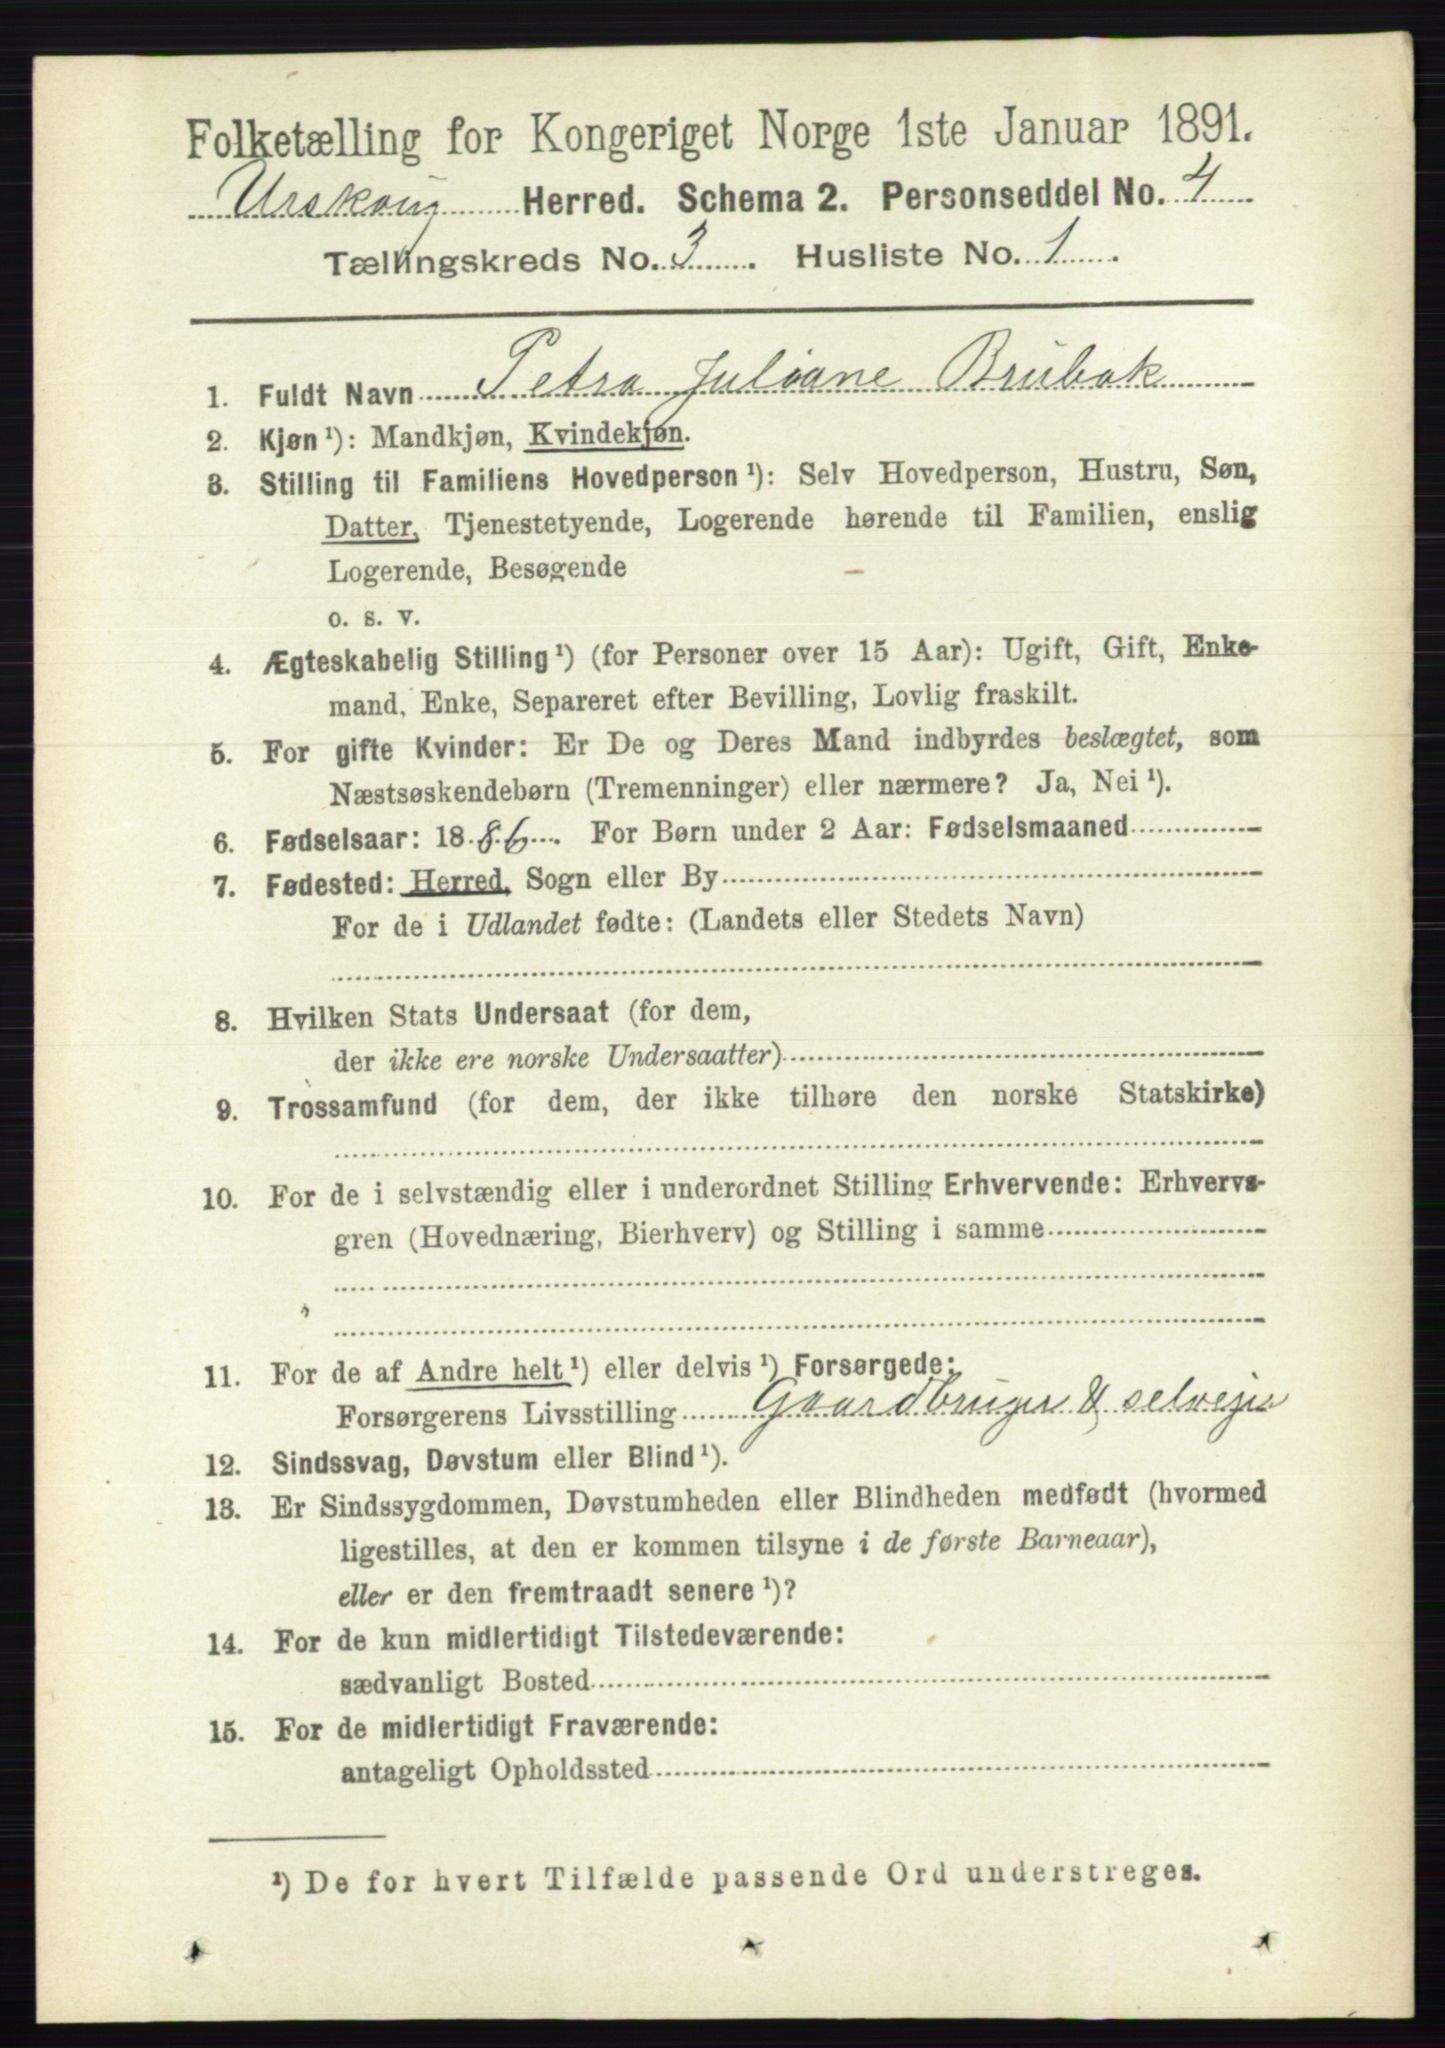 Folketælling for Kongeriget Norge 1ste Januar 1891.
Urskoug Herred. Schema 2. Personseddel No. 4
Tællingskreds No. 3. Husliste No. 1.
1. Fuldt Navn Petra Juliane Brubak
2. Kjøn ¹): Mandkjøn, Kvindekjøn.
3. Stilling til Familiens Hovedperson ¹): Selv Hovedperson, Hustru, Søn,
Datter, Tjenestetyende, Logerende hørende til Familien, enslig
Logerende, Besøgende
o. s. v.
4. Ægteskabelig Stilling ¹) (for Personer over 15 Aar): Ugift, Gift, Enke-
mand, Enke, Separeret efter Bevilling, Lovlig fraskilt.
5. For gifte Kvinder: Er De og Deres Mand indbyrdes beslægtet, som
Næstsøskendebørn (Tremenninger) eller nærmere? Ja, Nei ¹).
6. Fødselsaar: 1886. For Børn under 2 Aar: Fødselsmaaned
7. Fødested: Herred, Sogn eller By
For de i Udlandet fødte: (Landets eller Stedets Navn)
8. Hvilken Stats Undersaat (for dem,
der ikke ere norske Undersaatter)
9. Trossamfund (for dem, der ikke tilhøre den norske Statskirke)
10. For de i selvstændig eller i underordnet Stilling Erhvervende: Erhvervs-
gren (Hovednæring, Bierhverv) og Stilling i samme
11. For de af Andre helt ¹) eller delvis ¹) Forsørgede:
Forsørgerens Livsstilling Gaardbruger & selveier
12. Sindssvag, Døvstum eller Blind ¹).
13. Er Sindssygdommen, Døvstumheden eller Blindheden medfødt (hvormed
ligestilles, at den er kommen tilsyne i de første Barneaar),
eller er den fremtraadt senere ¹)?
14. For de kun midlertidigt Tilstedeværende:
sædvanligt Bosted
15. For de midlertidigt Fraværende:
antageligt Opholdssted
¹) De for hvert Tilfælde passende Ord understreges.